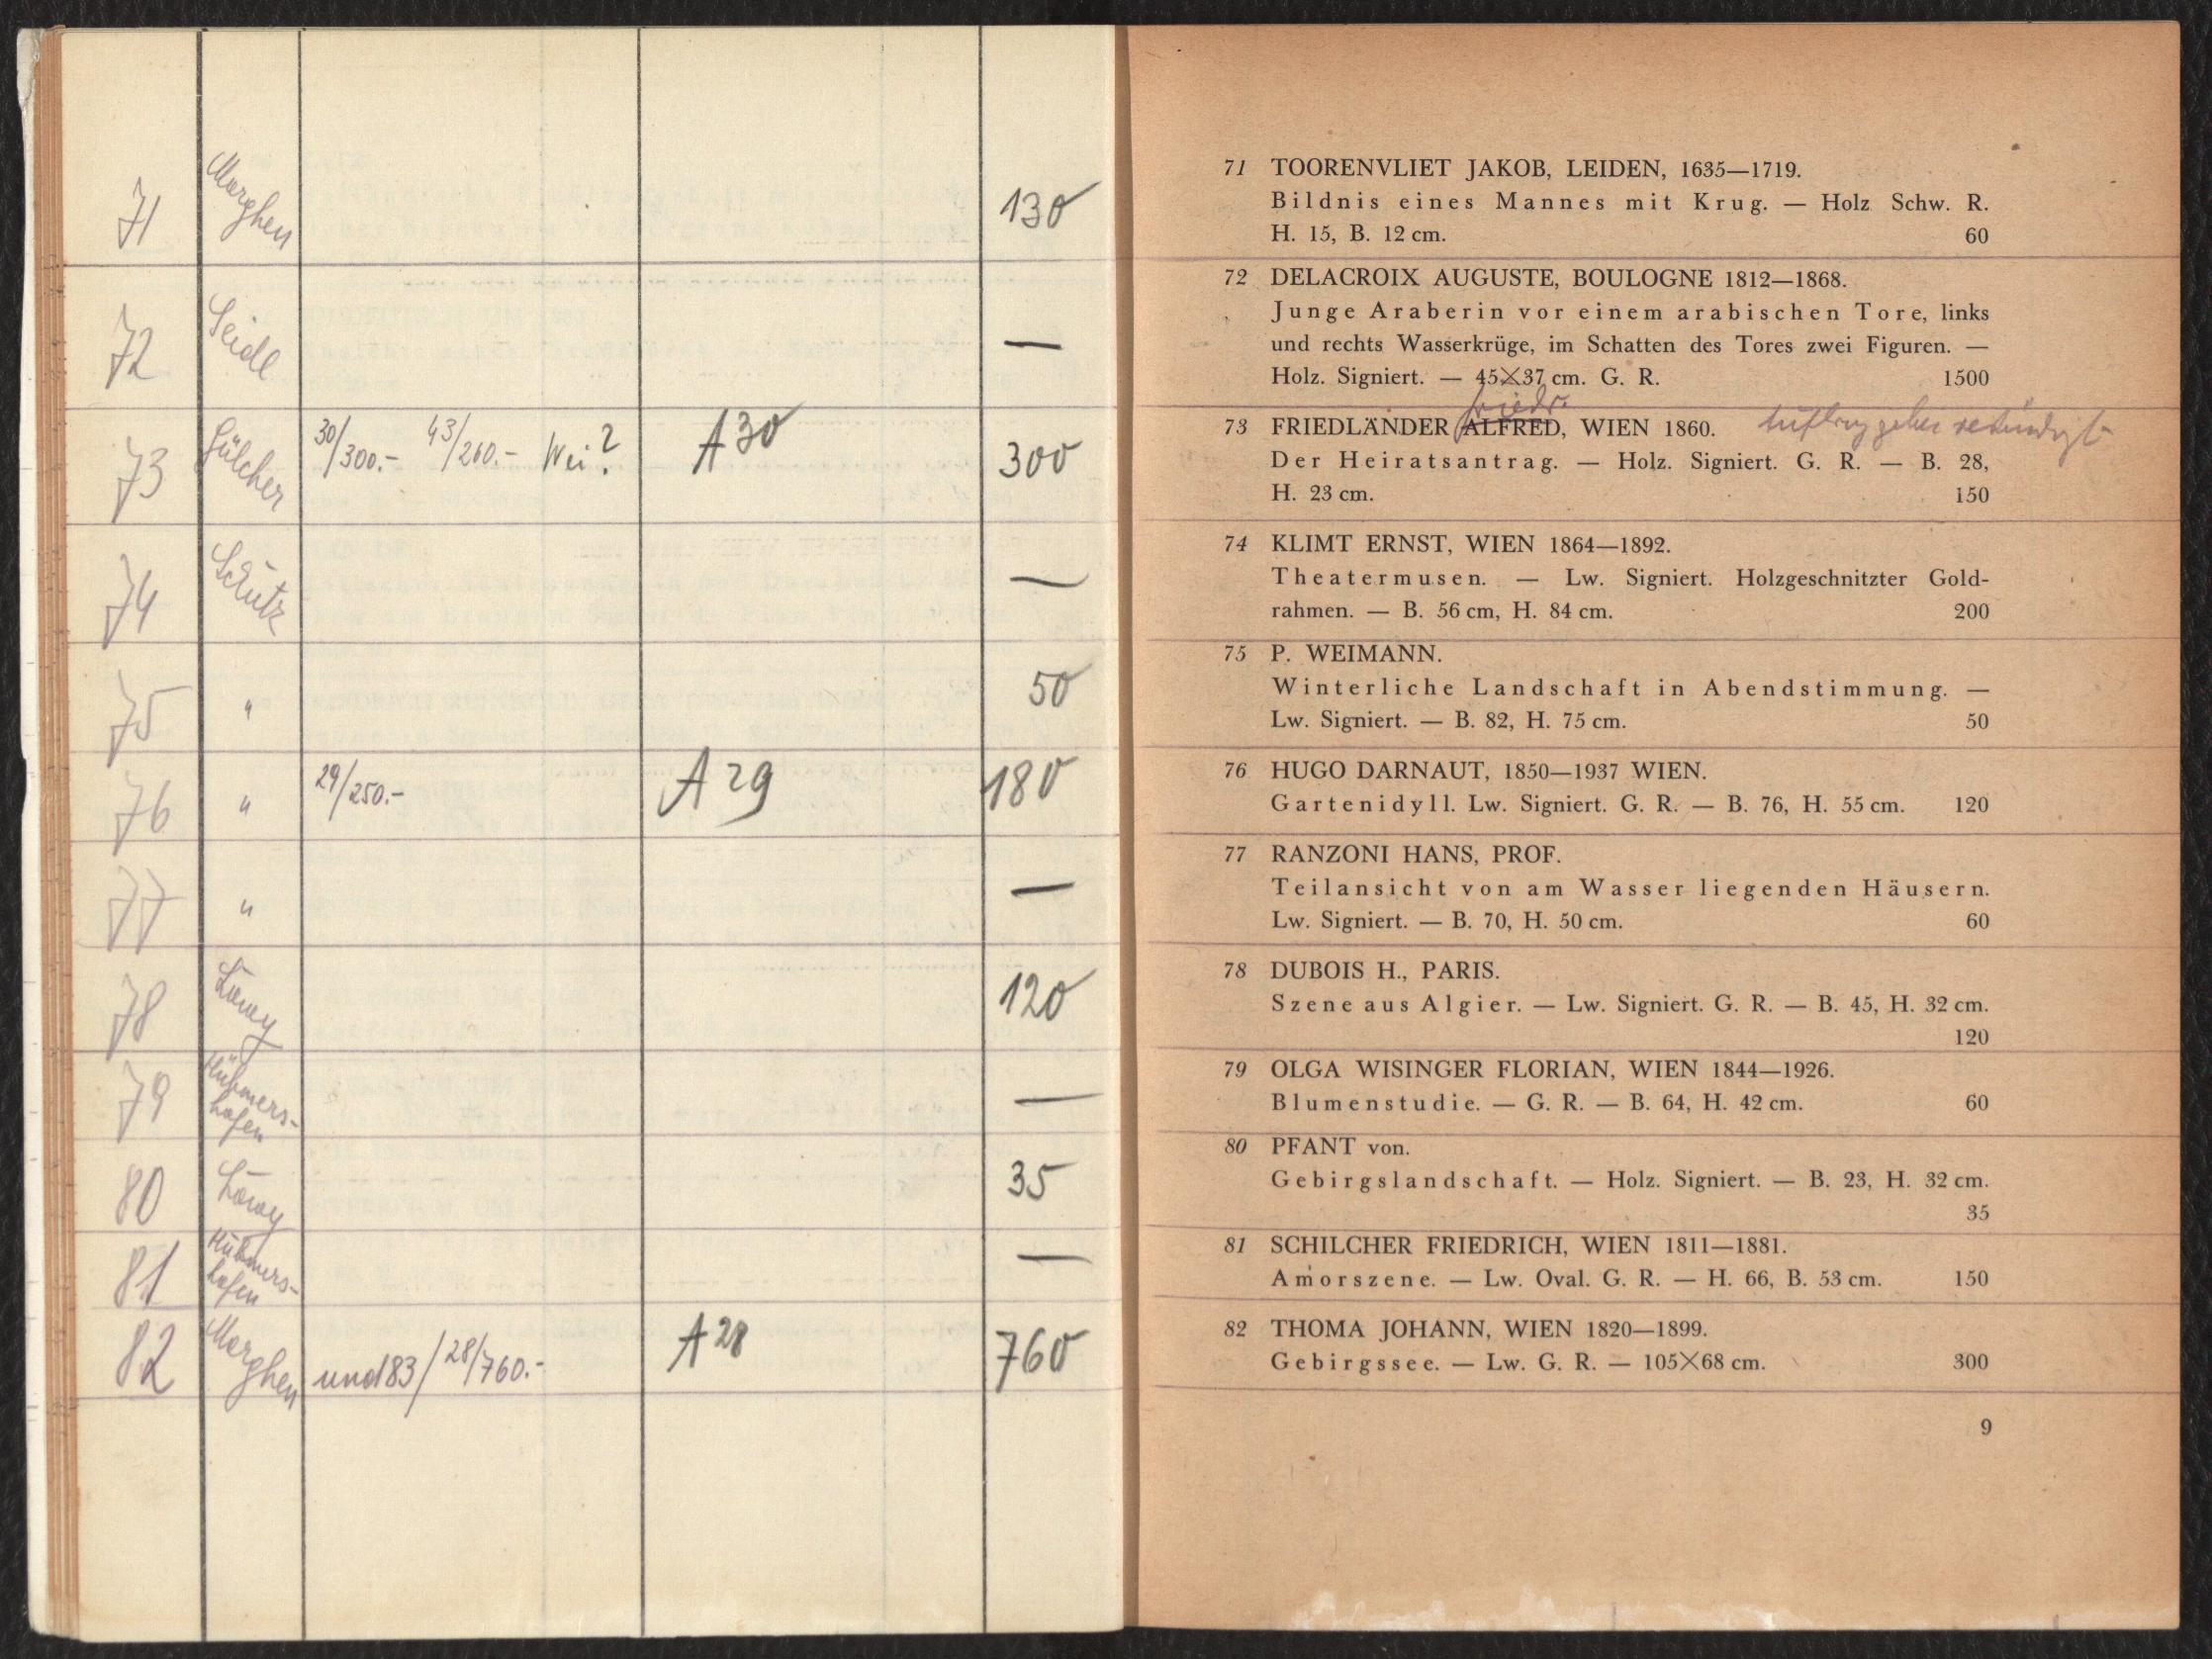 71 Marghen 130
72 Seidl —
73 Gülcher 30/300.- 43/260.- Wei? A 30 300
74 Schütz —
75 " 50
76 " 29/250.- A 29 180
77 " —
78 120
79 Hühmers-
hofen —
80 35
81 Hühmers-
hofen —
82 Marghen und 83/28/760.- A 28 760
71 TOORENVLIET JAKOB, LEIDEN, 1635—1719.
Bildnis eines Mannes mit Krug. — Holz Schw. R.
H. 15, B. 12 cm. 60
72 DELACROIX AUGUSTE, BOULOGNE 1812—1868.
Junge Araberin vor einem arabischen Tore, links
und rechts Wasserkrüge, im Schatten des Tores zwei Figuren. —
Holz. Signiert. — 45×37 cm. G. R. 1500
Friedr.
73 FRIEDLÄNDER ALFRED, WIEN 1860. Auftraggeber verständigt
Der Heiratsantrag. — Holz. Signiert. G. R. — B. 28,
H. 23 cm. 150
74 KLIMT ERNST, WIEN 1864—1892.
Theatermusen. — Lw. Signiert. Holzgeschnitzter Gold-
rahmen. — B. 56 cm, H. 84 cm. 200
75 P. WEIMANN.
Winterliche Landschaft in Abendstimmung. —
Lw. Signiert. — B. 82, H. 75 cm. 50
76 HUGO DARNAUT, 1850—1937 WIEN.
Gartenidyll. Lw. Signiert. G. R. — B. 76, H. 55 cm. 120
77 RANZONI HANS, PROF.
Teilansicht von am Wasser liegenden Häusern.
Lw. Signiert. — B. 70, H. 50 cm. 60
78 DUBOIS H., PARIS.
Szene aus Algier. — Lw. Signiert. G. R. — B. 45, H. 32 cm.
120
79 OLGA WISINGER FLORIAN, WIEN 1844—1926.
Blumenstudie. — G. R. — B. 64, H. 42 cm. 60
80 PFANT von.
Gebirgslandschaft. — Holz. Signiert. — B. 23, H. 32 cm.
35
81 SCHILCHER FRIEDRICH, WIEN 1811—1881.
Amorszene. — Lw. Oval. G. R. — H. 66, B. 53 cm. 150
82 THOMA JOHANN, WIEN 1820—1899.
Gebirgssee. — Lw. G. R. — 105×68 cm. 300
9